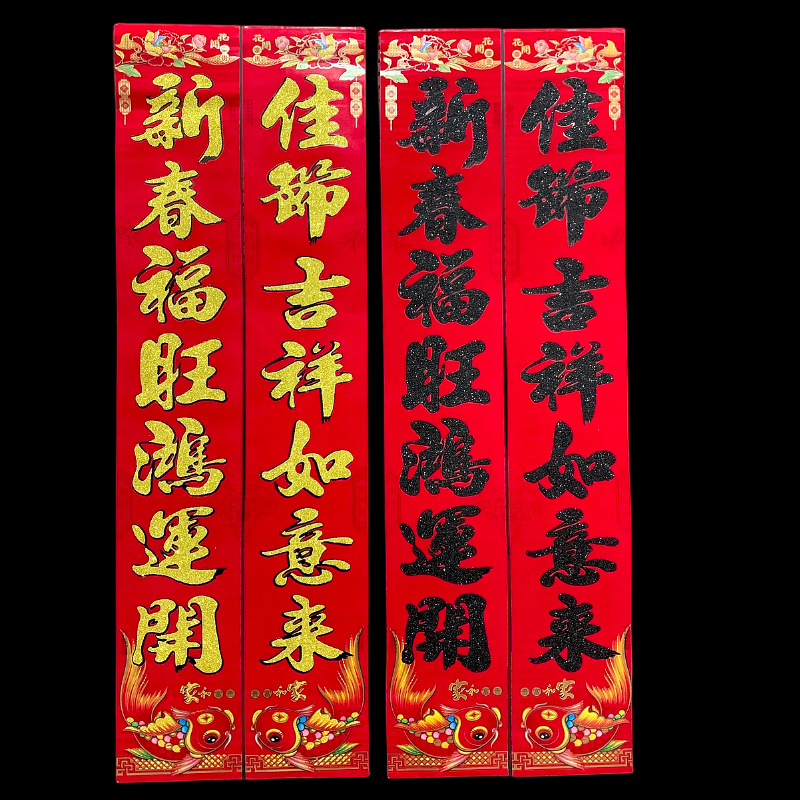 新春福旺鴻運開
佳節吉祥如意来
新春福旺鴻運開
佳節吉祥如意来
花開
花開
花開
花開
家和
家和
家和
家和